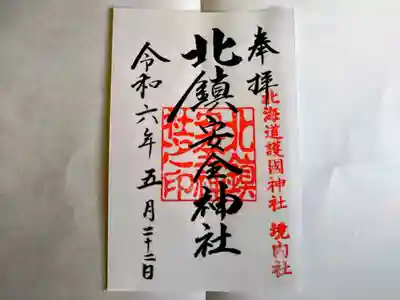 奉拝
北海道護國神社 境内社
北鎮安全神社
北鎮安全神社之印
令和六年五月二十二日